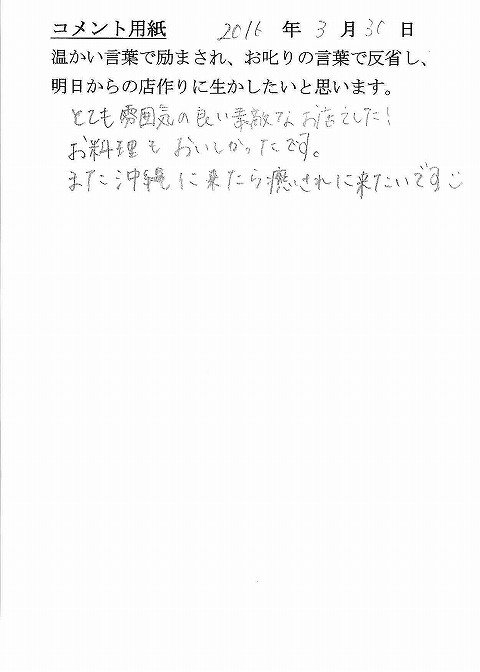 コメント用紙 2016 年 3 月 30 日
温かい言葉で励まされ、お叱りの言葉で反省し、
明日からの店作りに生かしたいと思います。
とても雰囲気の良い素敵なお店でした!
お料理も おいしかったです。
また沖縄に来たら癒されに来たいです☺